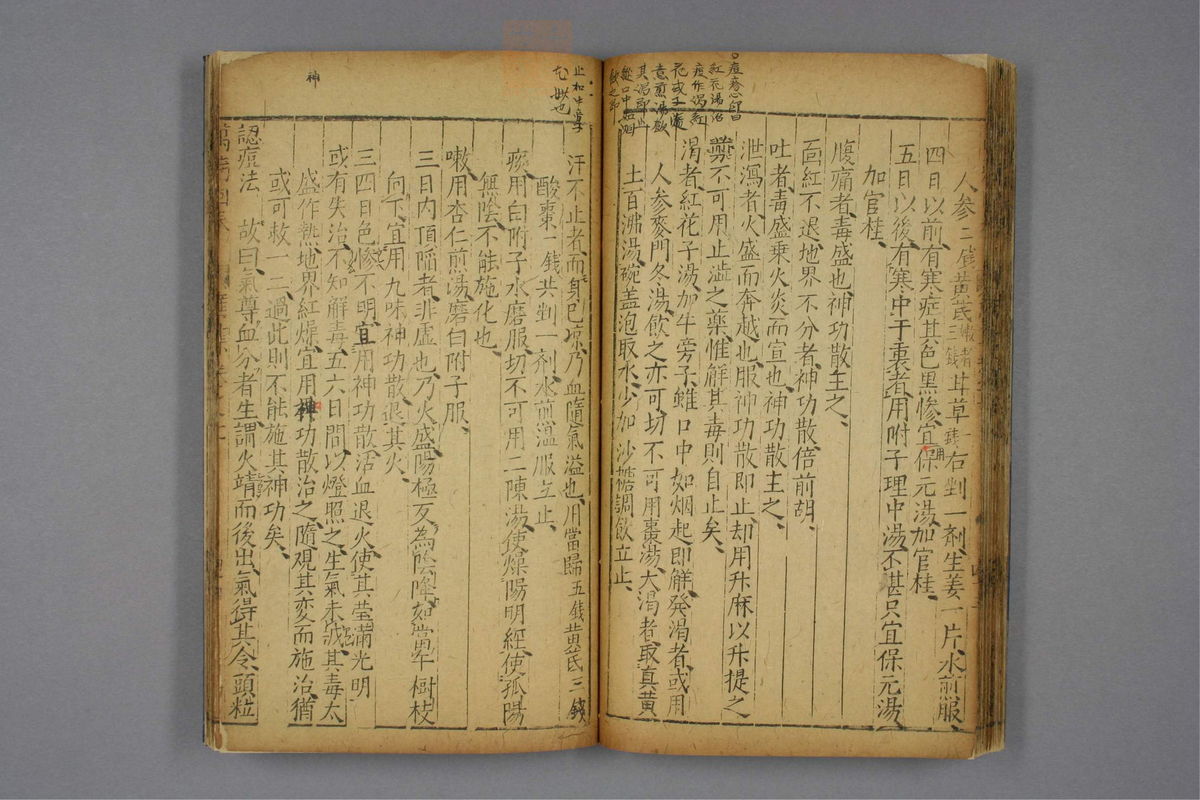 人參二錢黃芪嫩者三錢甘草一錢右剉一剤生姜一片水煎服
四日以前有寒症其色黑慘宜用保元湯加官桂
五日以後有寒中于裏者用附子理中湯不甚只宜保元湯
加官桂
腹痛者毒盛也神功散主之
靣紅不退地界不分者神功散倍前胡
吐者毒盛乗火炎而宣也神功散主之
泄瀉者火盛而奔越也服神功散即止却用升麻以升提之
藥不可用止澁之藥惟解其毒則自止矣
渴者紅花子湯加牛旁子雖口中如烟起即解發渴者或用
人參麥門冬湯飲之亦可切不可用棗湯大渴者取真黃
土百沸湯碗盖泡取水少加沙糖調飲立止
痘疹心印曰
紅花湯治
痘作渴紅
花或子
煮煎湯飲
其渴即止
雖口中如烟
止
也
汗不止者而身已凉乃血隨氣溢也用當歸五錢黃芪三錢
酸棗一錢共剉一剤水煎溫服立止
痰用白附子水磨服切不可用二陳湯使燥陽明經使孤陽
無陰不能施化也
嗽用杏仁煎湯磨白附子服
三日內頂陷者非虛也乃火盛陽極反為陰降如當午樹枝
向下宜用九味神功散退其火
三四日色慘不明宜用神功散活血退火使其瑩滿光明
或有失治不知解毒五六日間以燈照之生氣未㓕其毒太
盛作熱地界紅燥宜用神功散治之隨覌其変而施治猶
或可救一二過此則不能施其神功矣
認痘法 故曰氣尊血分者生謂火靖而後出氣得其令頭粒
神